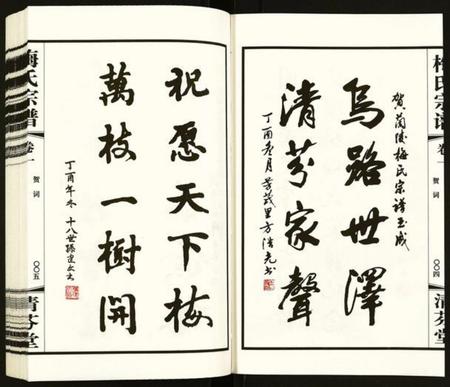 賀蘭陵梅氏宗譜玉成
烏路世澤
清芬家聲
丁酉冬月
方浩光书
梅氏宗谱
卷一
贺词
〇〇四
清芬堂
祝愿天下梅
萬枝一樹開
丁酉年冬 十八世孫
梅氏宗谱
卷一
贺词
〇〇五
清芬堂